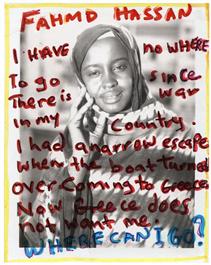 FAHMD HASSAN
I HAVE no WHERE
To go since
There is war
in my Country.
I had a narrow escape
when the boat turned
over Coming to Greece
Now Greece does
not want me.
WHERE CAN I GO?